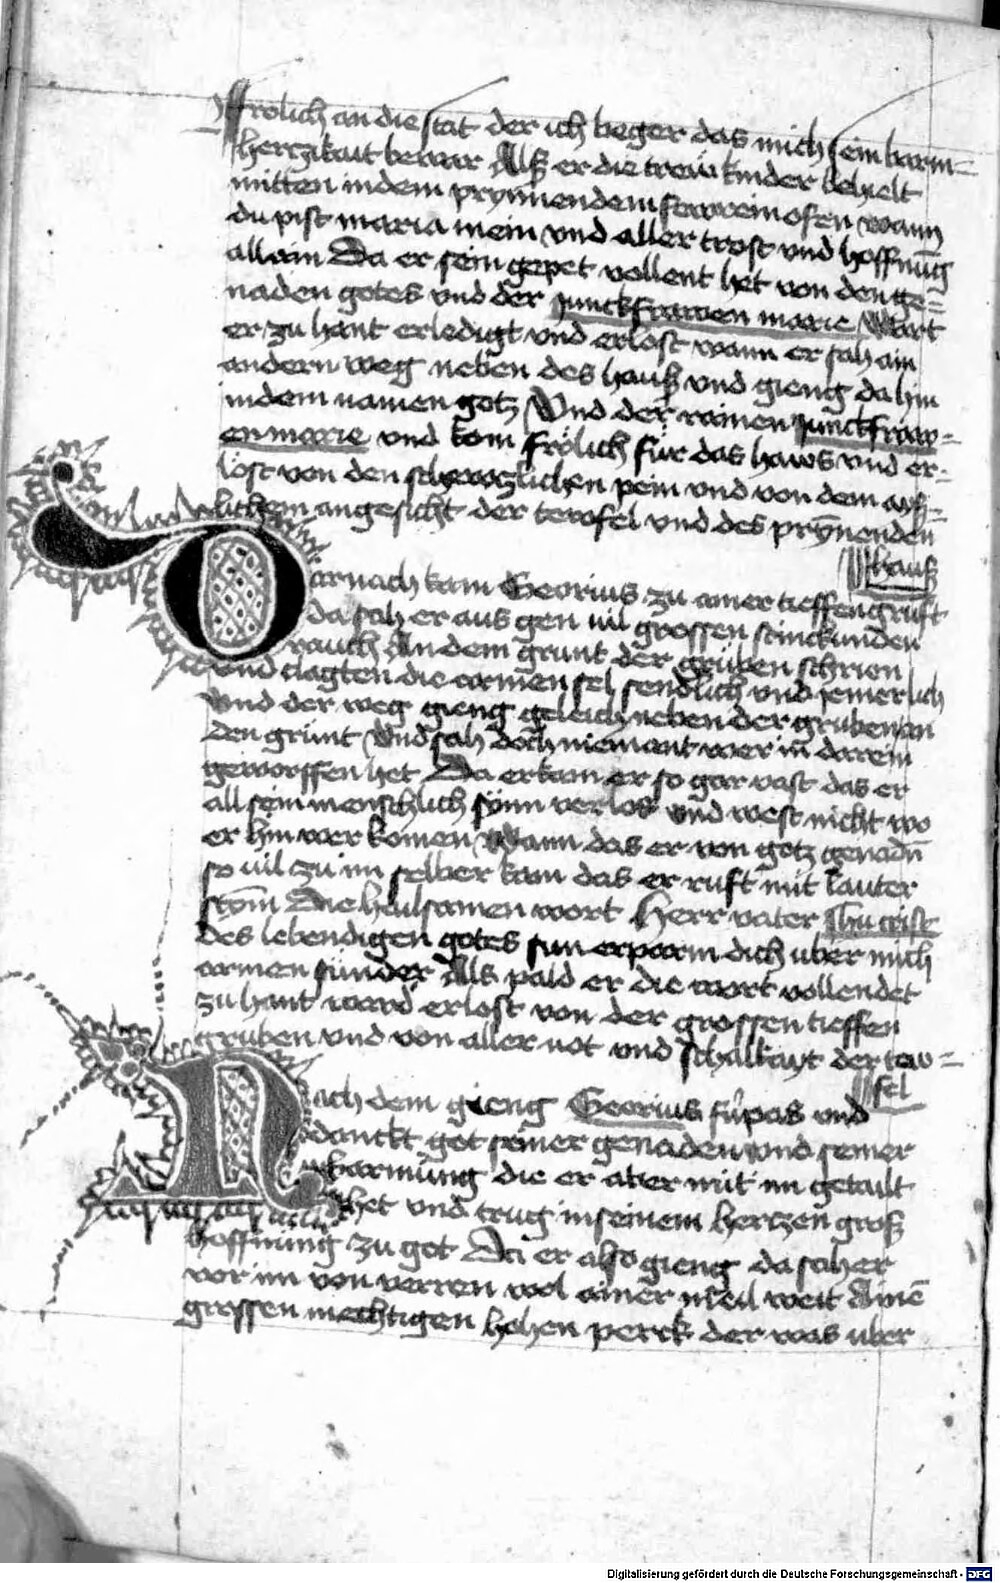 frölich an die stat der ich beger das mich sein barm=
herczikait bewar Als er die treü kinder behielt
mitten in dem prynnendem fewrem ofen wann
du pist maria mein vnd aller trost vnd hoffnūg
allain Da er sein gepet vollent het von den ge=
naden gotes vnd der junckfrawen marie Wart
er zu hant erledigt vnd erlost wann er sah ain
andern weg neben des hauß vnd gieng da hin
in dem namen gotz Vnd der rainen junckfraw=
en marie vnd kom frölich für das haws vnd er=
löst von den schewczlichen pein vnd von dem
lichem angesicht der tewfel vnd des pry̅nenden
hauß
Darnach kam Georius zu ainer tieffen gruft
da sah er aus gen uil grossen stinckunden
rauch An dem grunt der grüben schrien
vnd clagten die armen sel sendlich vnd jemerlich
Vnd der weg gieng geleich neben der gruben an
den grünt Vnd sah doch niemant wer in darein
geworffen het Da erkam er so gar vast das er
all sein menschlich synn verlos vnd west nicht wo
er hin wer komen Wann das er von gotz genadn̄
so uil zu im selber kam das er ruft mit lauter
stym̄ Die hailsamen wort Herr vater Jhu criste
des lebendigen gotes sun erparm dich uber mich
armen sünder Als pald er die wort vollendet
zu hant ward erlost von der grossen tieffen
gruben vnd von aller not vnd schalkayt der tew=
fel
Nach dem gieng Georius fürpas vnd
danckt got seiner genaden vnd seiner
barmūng die er aber mit im getailt
het vnd trug in seinem hertzen groß
hoffnung zu got Da er also gieng da sah er
vor im von verren wol ainer meil weit Ainē
grossen mechtigen hohen perck der was uber
Digitalisierung gefördert durch die Deutsche Forschungsgemeinschaft - DFG